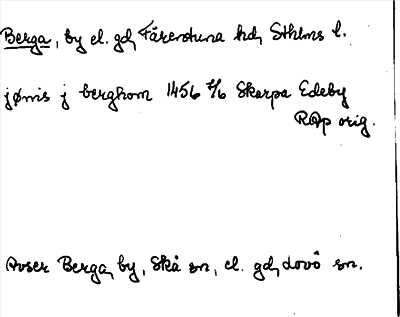 Berga, by el. gd, Färentuna hd, Sthlms l.
jønis j berghom 1456 2/6 Skarpa Edeby
RAp orig.
Avser Berga, by, Skå sn, el. gd, Lovö sn.